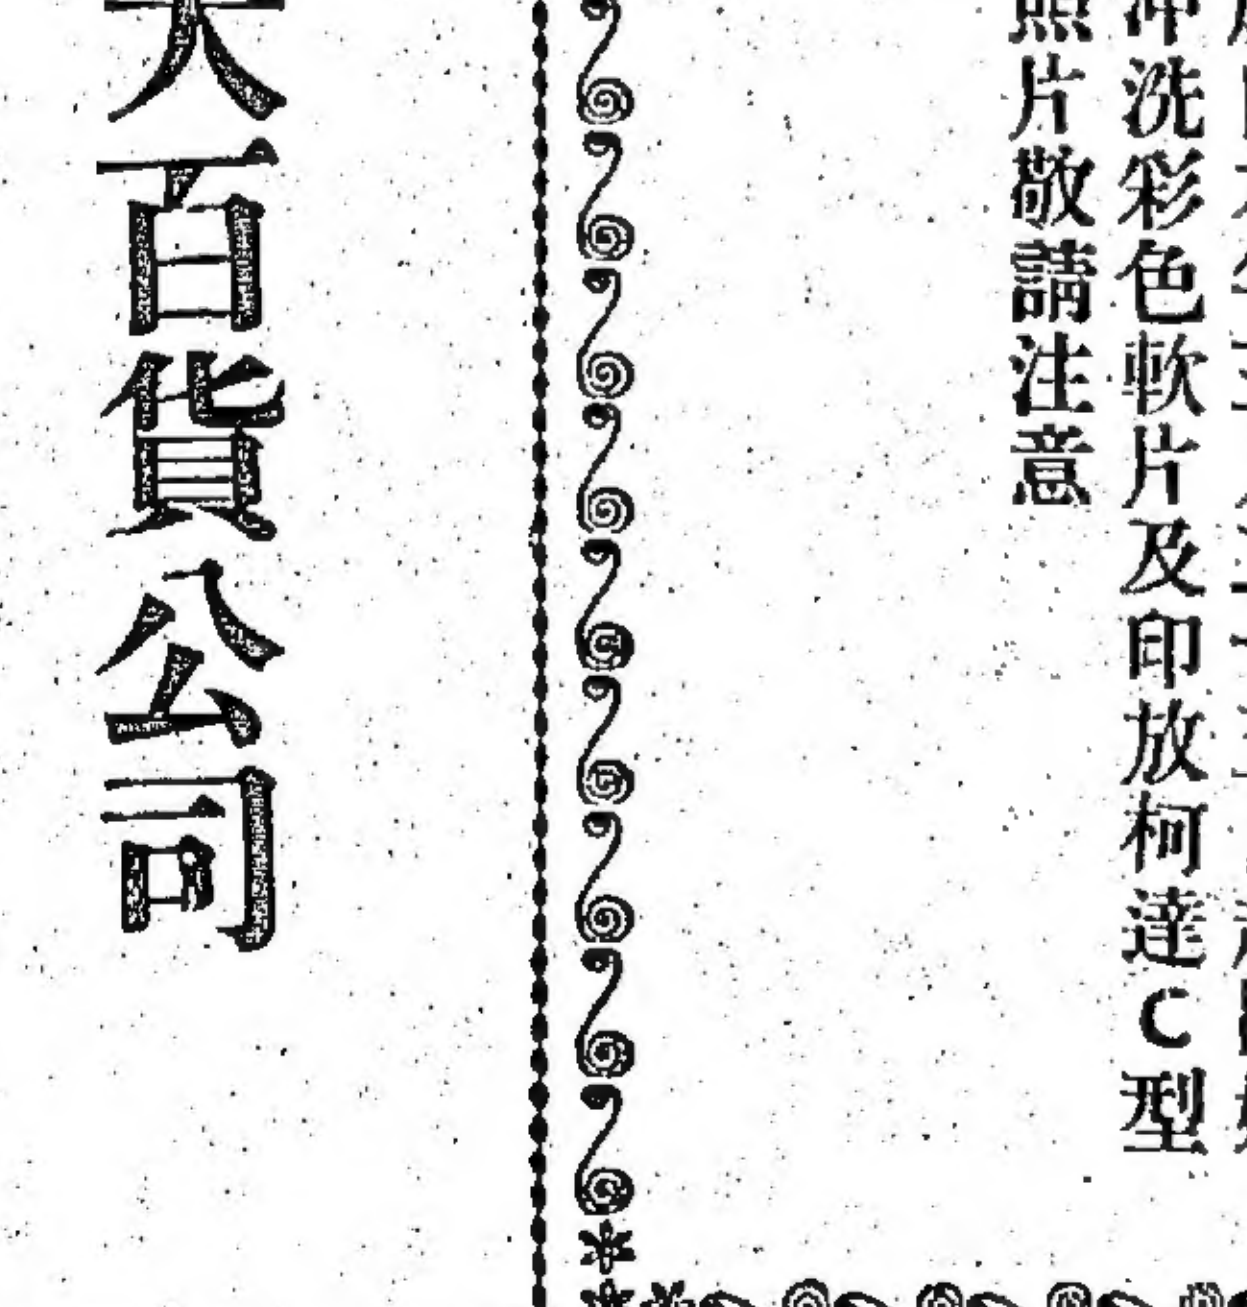 沖洗彩色軟片及印放柯達C型
照片敬請注意
大百貨公司